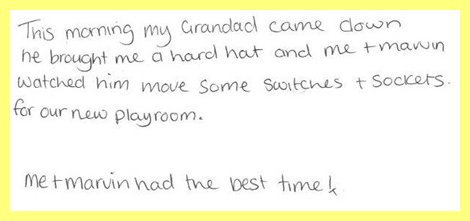 This morning my Grandad came down
he brought me a hard hat and me + marvin
watched him move some switches + sockets.
for our new playroom.
me + marvin had the best time!